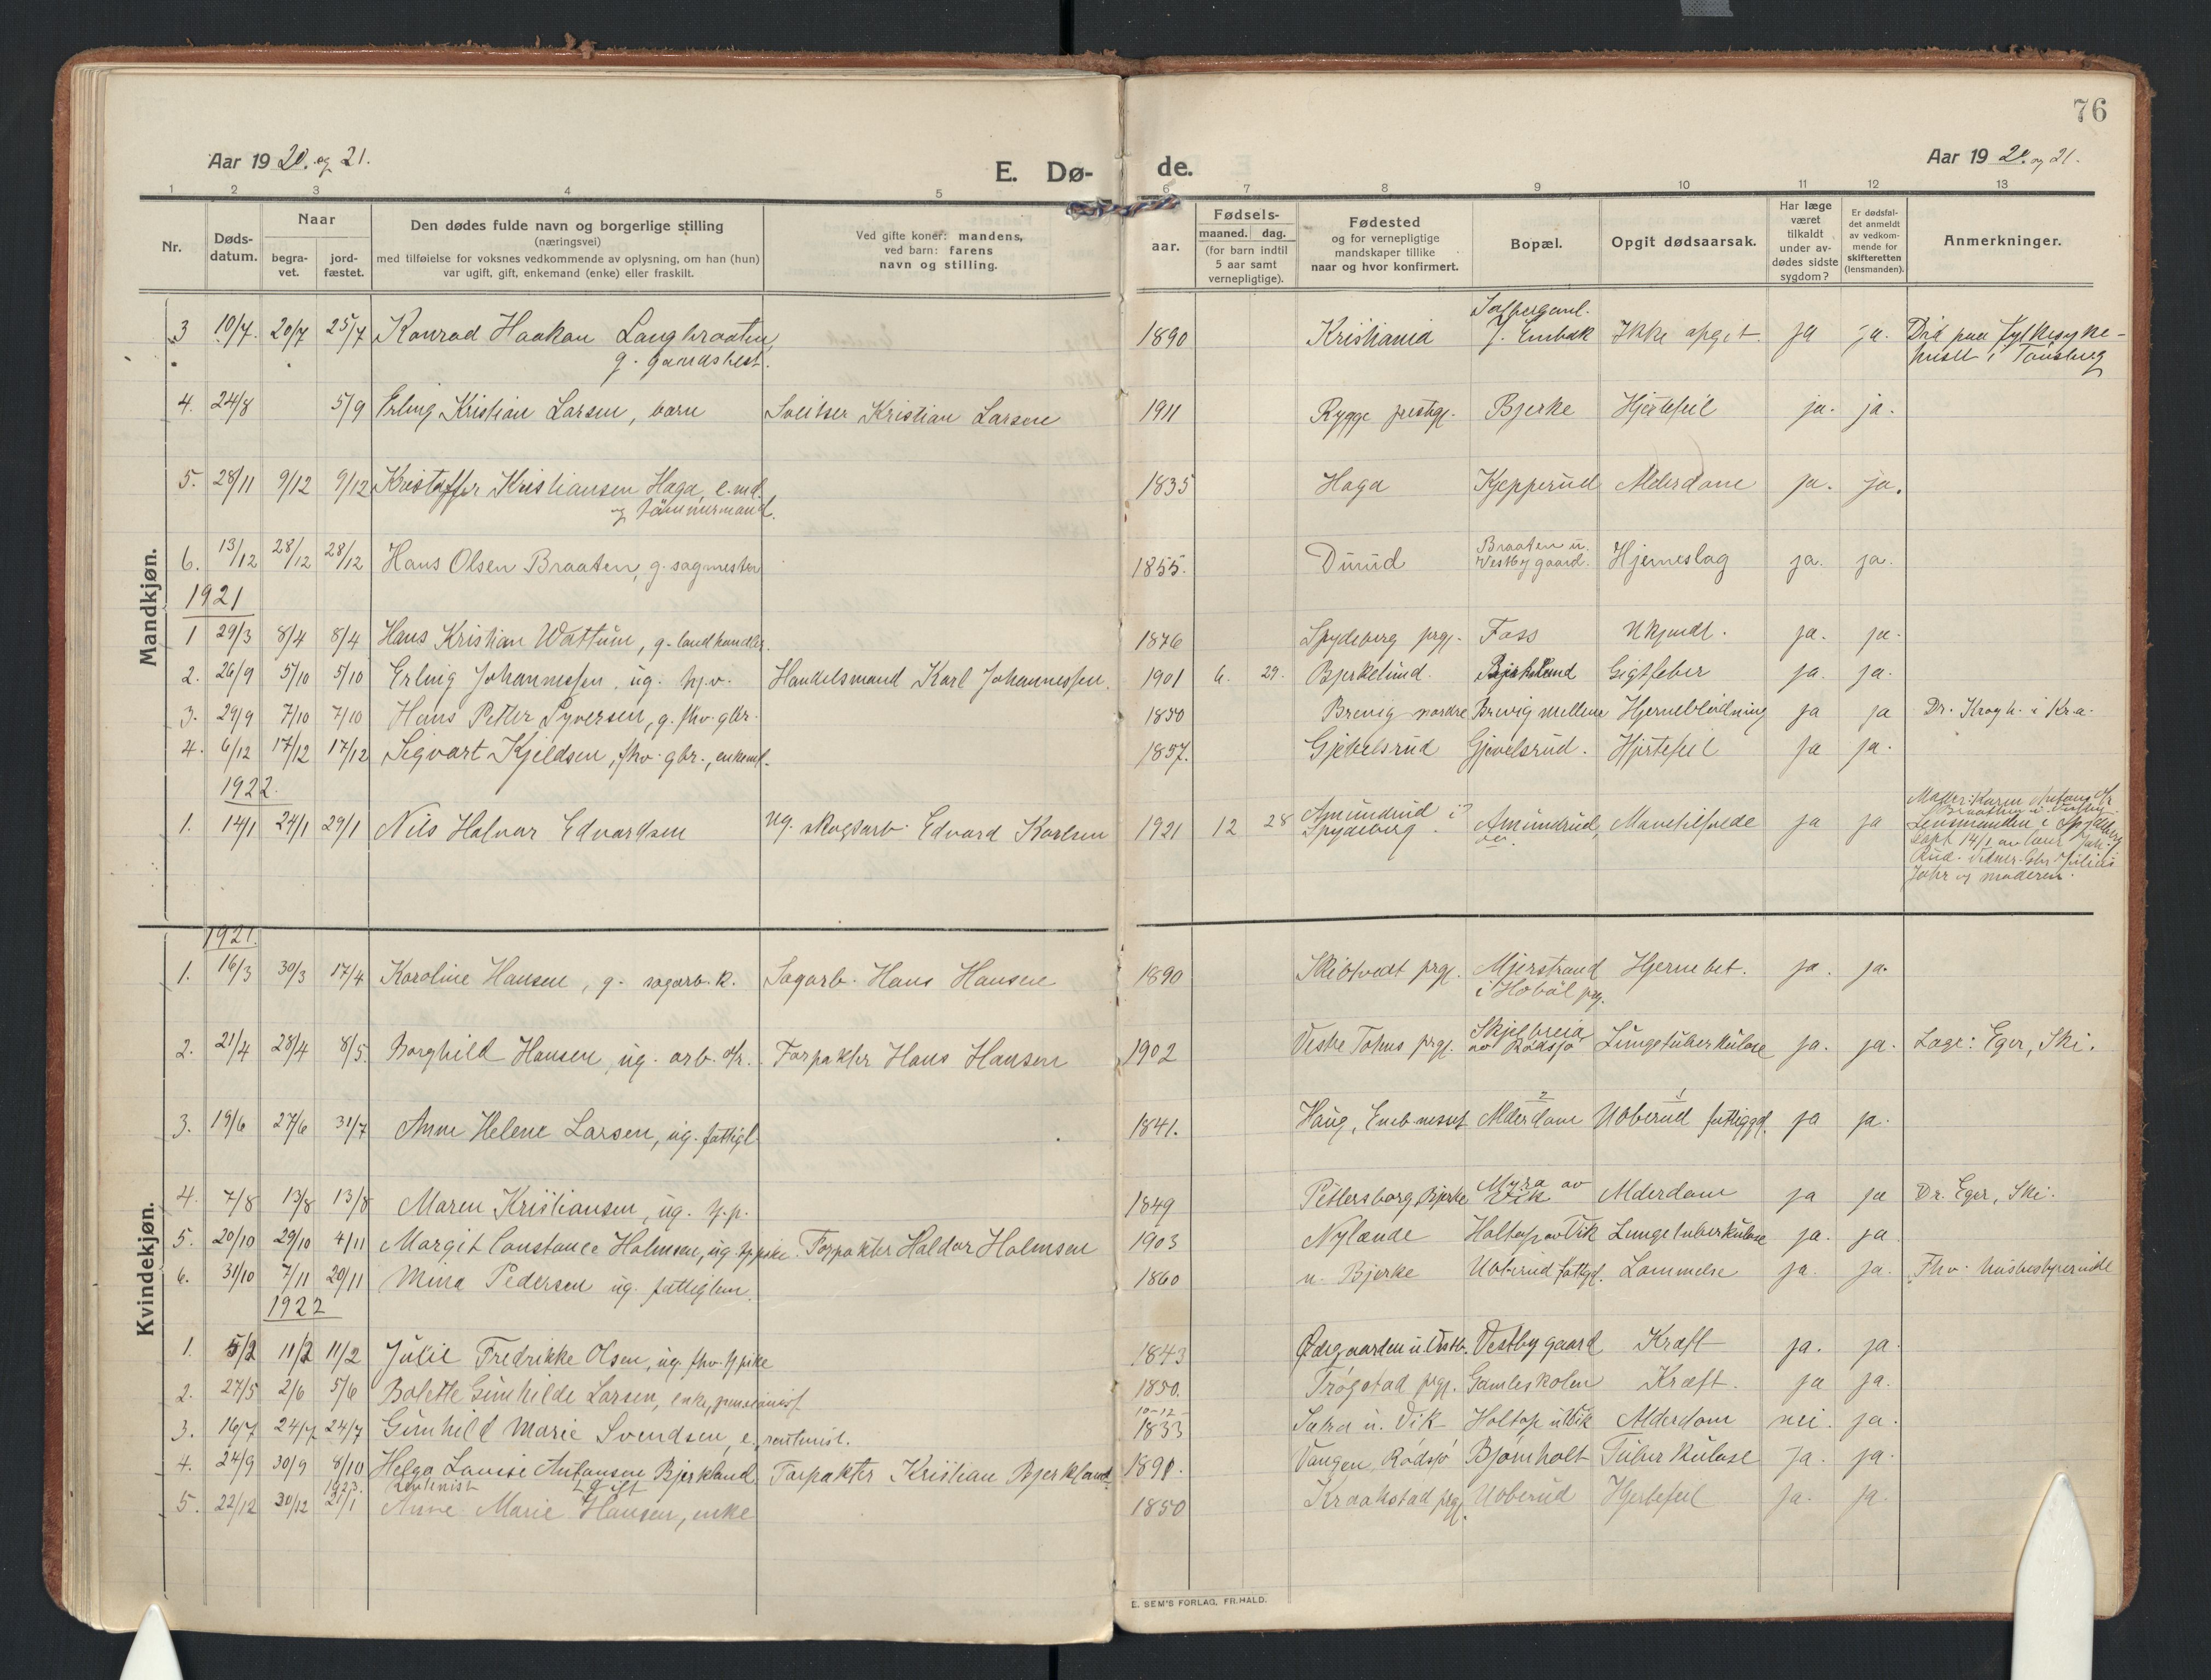 76
Aar 1920. og 21.
E. Dø-
de.
Aar 1920. og 21.
1 2 3 4 5 6 7 8 9 10 11 12 13
Nr.
Døds-
datum.
Naar
begra-
vet.
jord-
fæstet.
Den dødes fulde navn og borgerlige stilling
(næringsvei)
med tilføielse for voksnes vedkommende av oplysning, om han (hun)
var ugift, gift, enkemand (enke) eller fraskilt.
Ved gifte koner: mandens,
ved barn: farens
navn og stilling.
aar.
Fødsels-
maaned. dag.
(for barn indtil
5 aar samt
vernepligtige).
Fødested
og for vernepligtige
mandskaper tillike
naar og hvor konfirmert.
Bopæl.
Opgit dødsaarsak.
Har læge
været
tilkaldt
under av-
dødes sidste
sygdom?
Er dødsfal-
det anmeldt
av vedkom-
mende for
skifteretten
(lensmanden).
Anmerkninger.
Mandkjøn.
3 10/7. 20/7 25/7 Konrad Haakon Langbraaten, 1890 Kristiania J. Enebak Ikke opgit. ja ja. Død paa fylkesyke-
g. gaardsbest. huset i Tønsberg
4. 24/8 5/9 Erling Kristian Larsen, barn Sveitser Kristian Larsen 1911 Rygge prestgj. Bjerke Hjertefeil ja. ja.
5. 28/11 9/12 9/12 Kristoffer Kristiansen Haga, e.md. 1835 Haga Kjepperud Alderdom ja. ja.
og tømmermand.
6. 13/12 28/12 28/12 Hans Olsen Braaten, g. sagmester 1855. Duud Braaten u. Vestby gaard. Hjerneslag ja. ja.
1921
1 29/3 8/4 8/4 Hans Kristian Wattum, g. landhandler. 1876 Spydeberg prgj. Foss Ukjendt. ja. ja.
2. 26/9 5/10 5/10 Erling Johannessen, ug. hj.v. Handelsmand Karl Johannessen. 1901 6. 29. Bjerkelund. Bjerkelund Gigtfeber ja. ja.
3. 29/9 7/10 7/10 Hans Petter Syversen, g. fhv. gbr. 1850 Brevig nordre Brevig mellem Hjerneblødning ja ja Dr. Krogh. i Kra.
4. 6/12 17/12 17/12 Sigvart Kjeldsen, fhv. gbr., enkem. 1857. Gjevelsrud Gjevelsrud. Hjertefeil ja ja.
1922.
1. 14/1 24/1 29/1 Nils Halvar Edvardsen Ug. skogsarb. Edvard Karlsen 1921 12 28 Amundrud i Spydeberg. Amundrud, Mavetilfelde ja ja
Moder: Karen
Lensmanden i Spydeberg
og moderen.
Kvindekjøn.
1921.
1. 16/3 30/3 17/4 Karoline Hansen, g. sagarb. k. Sagarb. Hans Hansen 1890 Skibtvedt prgj. Mjerstrand Hjernebet. ja. ja.
i Hobøl prg.
2. 21/4 28/4 8/5. Borghild Hansen, ug. arb. dtr. Forpakter Hans Hansen 1902 Vestre Totens prgj. Skjelbreia av Rødsjø Lungetuberkulose ja. ja. Læge: Eger, Ski.
3. 19/6 27/6 31/7 Anne Helene Larsen, ug. fattigl. 1841. Haug, 2 Alderdom 1 Ubberud fattiggd. ja ja.
4. 7/8 13/8 13/8 Maren Kristiansen, ug. hj.p. 1849 Pettersborg Bjerke Myra av Vik Alderdom ja ja Dr. Eger, Ski.
5. 20/10 29/10 4/11 Margit Constance Holmsen, ug. hj.pike. Forpakter Haldor Holmsen 1903 Nylænde Holtop av Vik Lungetuberkulose ja. ja
6. 31/10 7/11 20/11 Mina Pedersen ug. fattiglem. 1860 n. Bjerke Ubberud fattgd. Lammelse ja. ja. Fhv. husbestyrerinde
1922
1. 5/2 11/2 11/2 Julie Fredrikke Olsen, ug. fhv. hj.pike 1843 Ødegaarden u. Vestb. Vestby gaard Kræft ja. ja
2. 27/5 2/6 5/6 Bolette Gunhilde Larsen, enke, pensionist 1850. Trøgstad prgj. Gamleskolen Kræft. ja ja.
10-12-
3. 16/7 24/7 24/7 Gunhild Marie Svendsen, e. rentenist. 1833 Sætra u. Vik Holtop u. Vik Alderdom nei. ja.
4. 24/9 30/9 8/10 Helga Lovise Antonsen Bjerkland Forpakter Kristian Bjerkland. 1891. Vangen, Rødsjø Bjørnholt Tuberkulose ja. ja.
1923. Rentenist gift
5. 22/12 30/12 21/1 Anne Marie Hansen, enke 1850 Kraakstad prgj. Ubberud Hjertefeil ja. ja.
E. SEM'S FORLAG, FR.HALD.